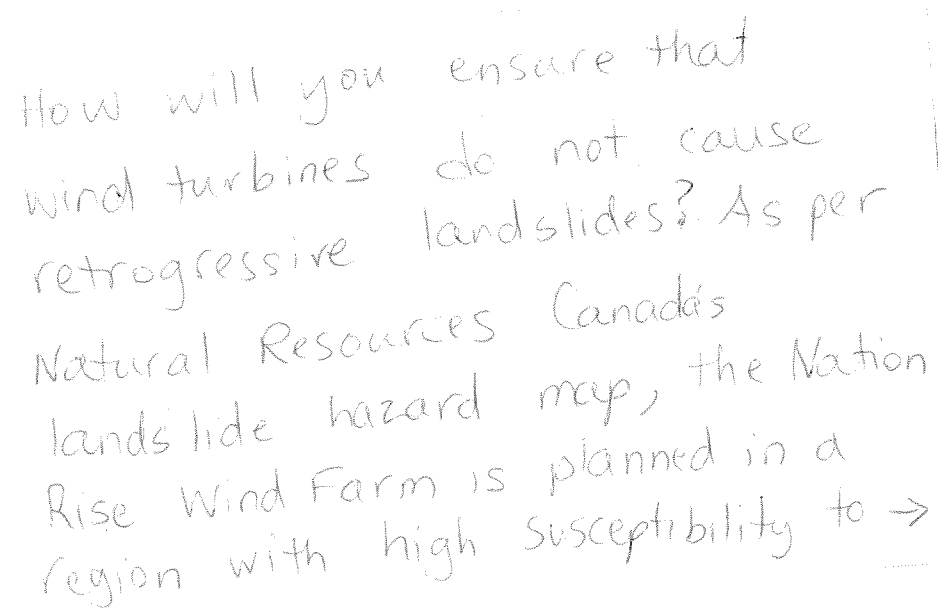 How will you ensure that
wind turbines do not cause
retrogressive landslides? As per
Natural Resources Canada's
landslide hazard map, the Nation
Rise Wind Farm is planned in a
region with high susceptibility to →